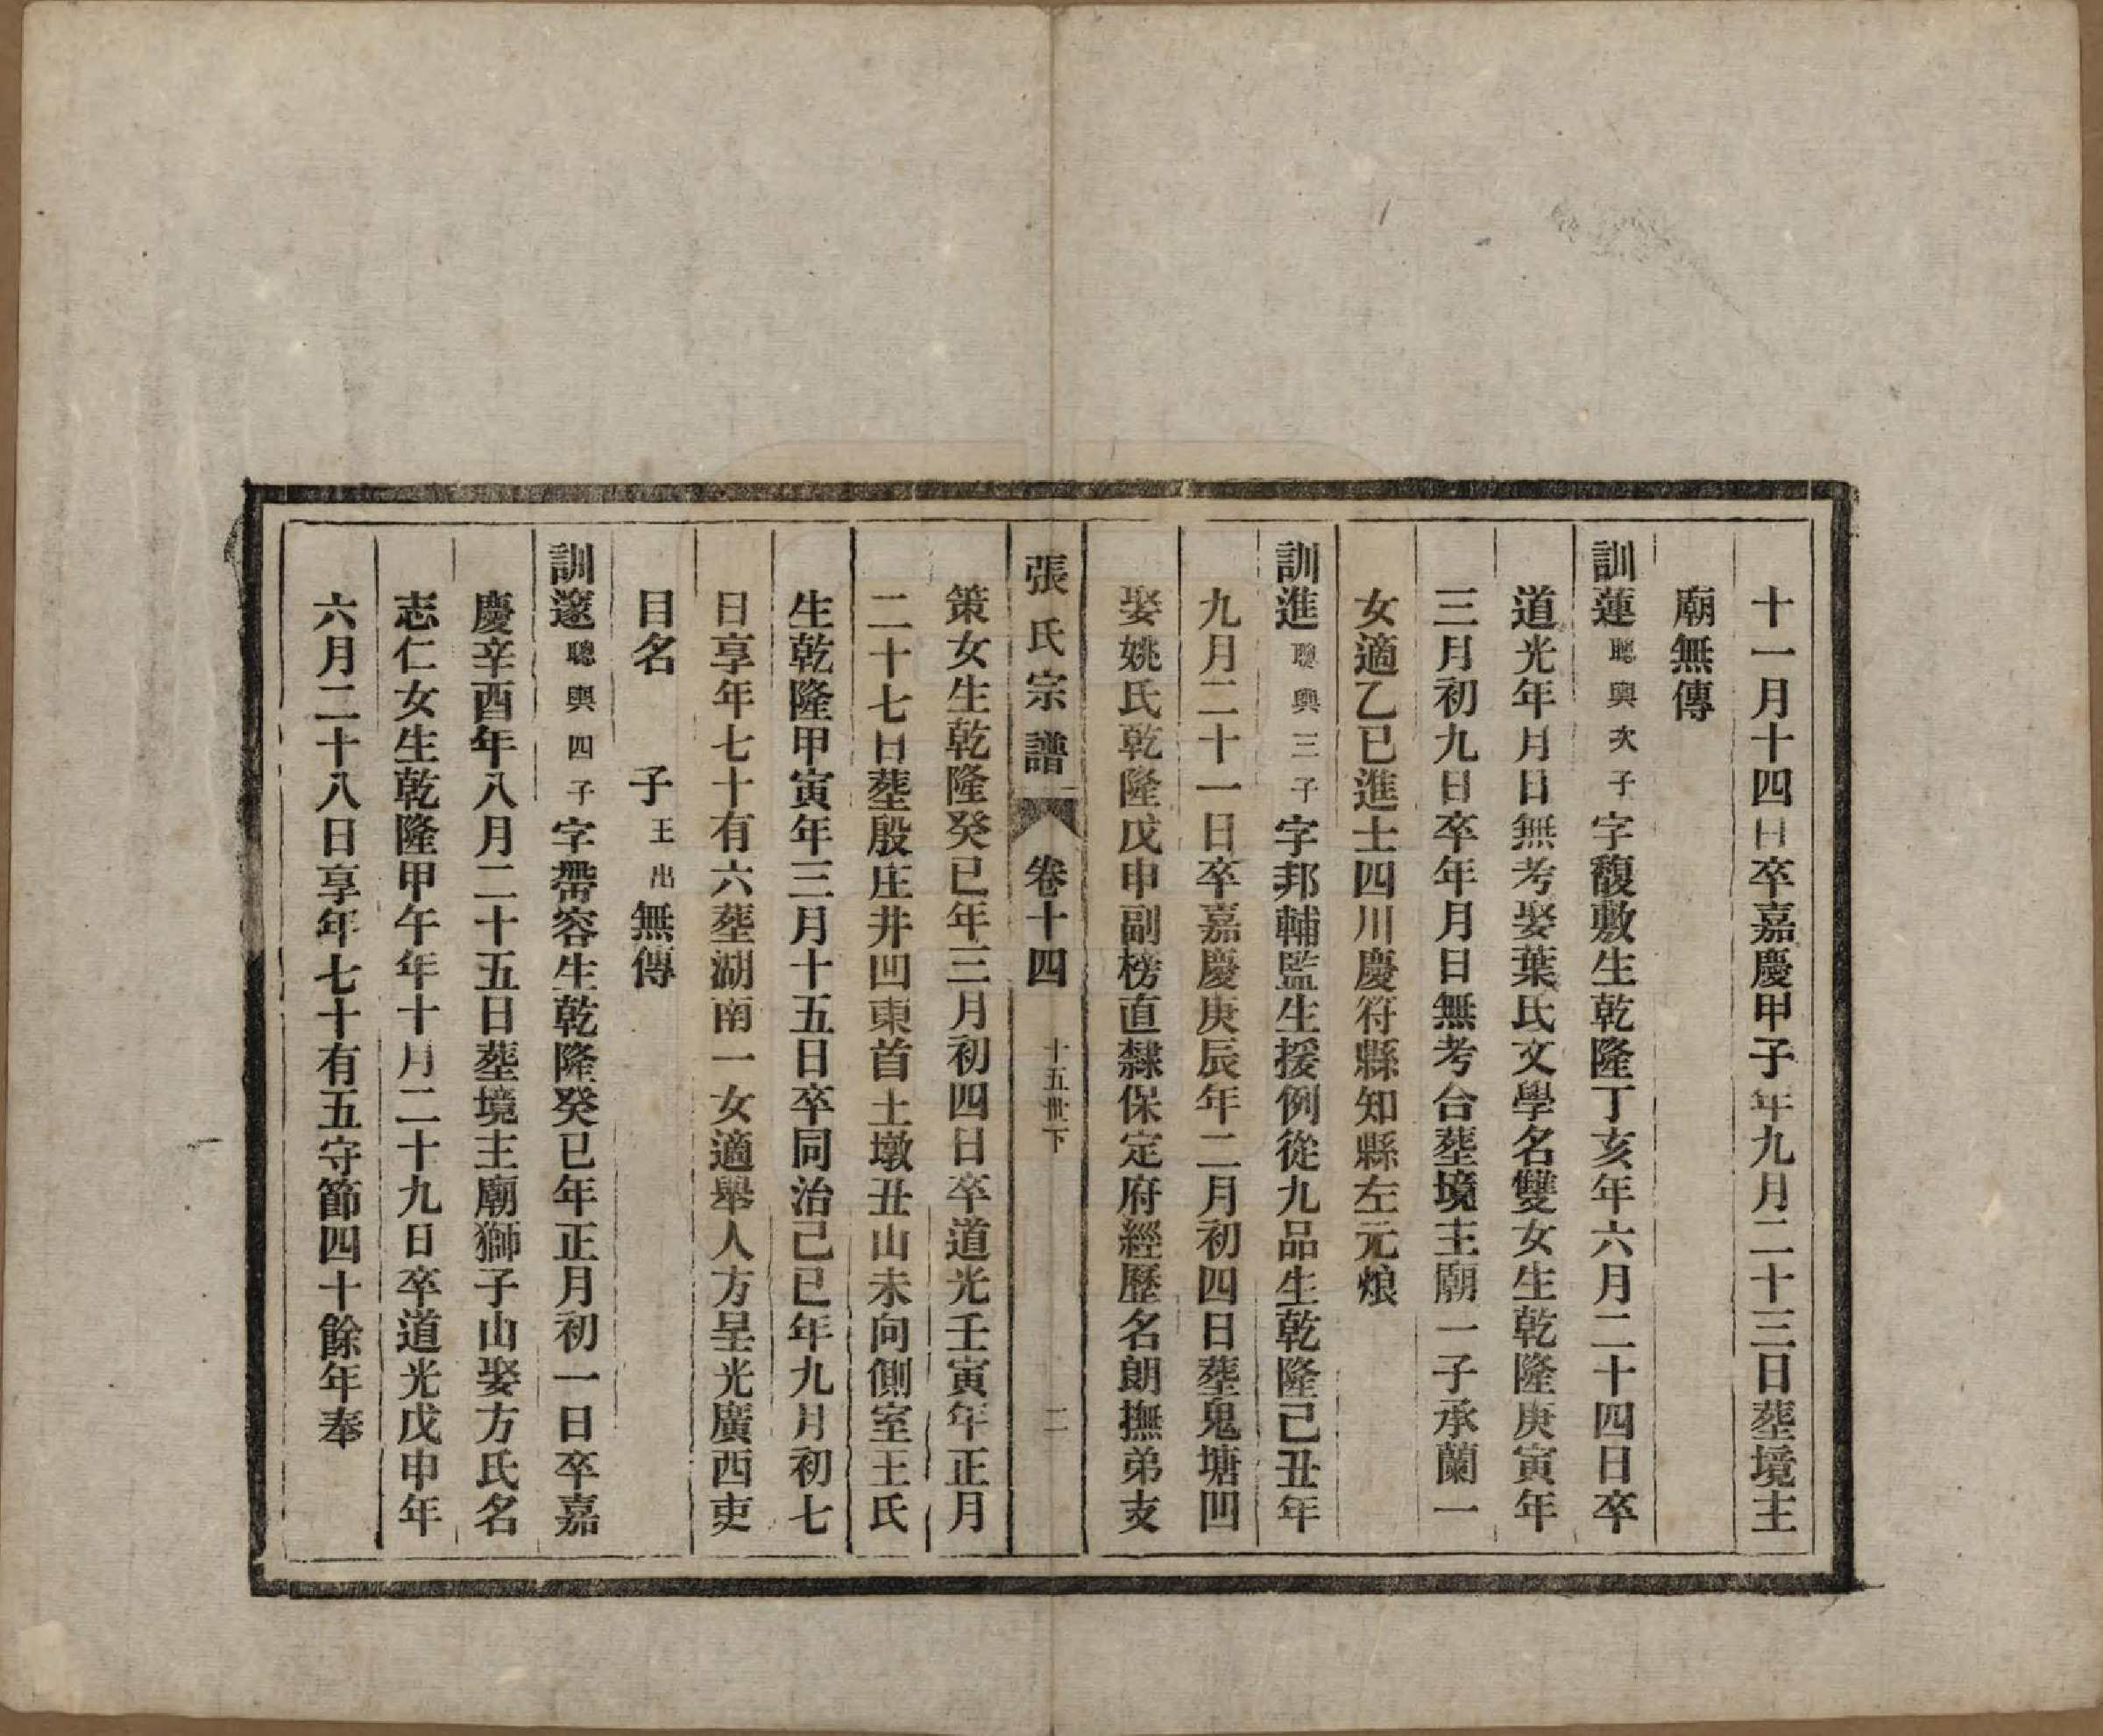 十一月十四日卒嘉慶甲子年九月二十三日塟境主
廟無傳
訓蓮聰興次子字馥敷生乾隆丁亥年六月二十四日卒
道光年月日無考娶葉氏文學名雙女生乾隆庚寅年
三月初九日卒年月日無考合塟境主廟一子承蘭一
女適乙巳進士四川慶符縣知縣左元烺
訓進聰興三子字邦輔監生援例從九品生乾隆己丑年
九月二十一日卒嘉慶庚辰年二月初四日塟鬼塘凹
娶姚氏乾隆戊申副榜直隸保定府經歷名朗撫弟支
張氏宗譜 卷十四 十五世下 二
策女生乾隆癸巳年三月初四日卒道光壬寅年正月
二十七日塟殷庄井凹東首土墩丑山未向側室王氏
生乾隆甲寅年三月十五日卒同治己巳年九月初七
日享年七十有六塟湖南一女適舉人方呈光廣西吏
目名 子王出無傳
訓邃聰輿四子字帶容生乾隆癸巳年正月初一日卒嘉
慶辛酉年八月二十五日塟境主廟獅子山娶方氏名
志仁女生乾隆甲午年十月二十九日卒道光戊申年
六月二十八日享年七十有五守節四十餘年奉